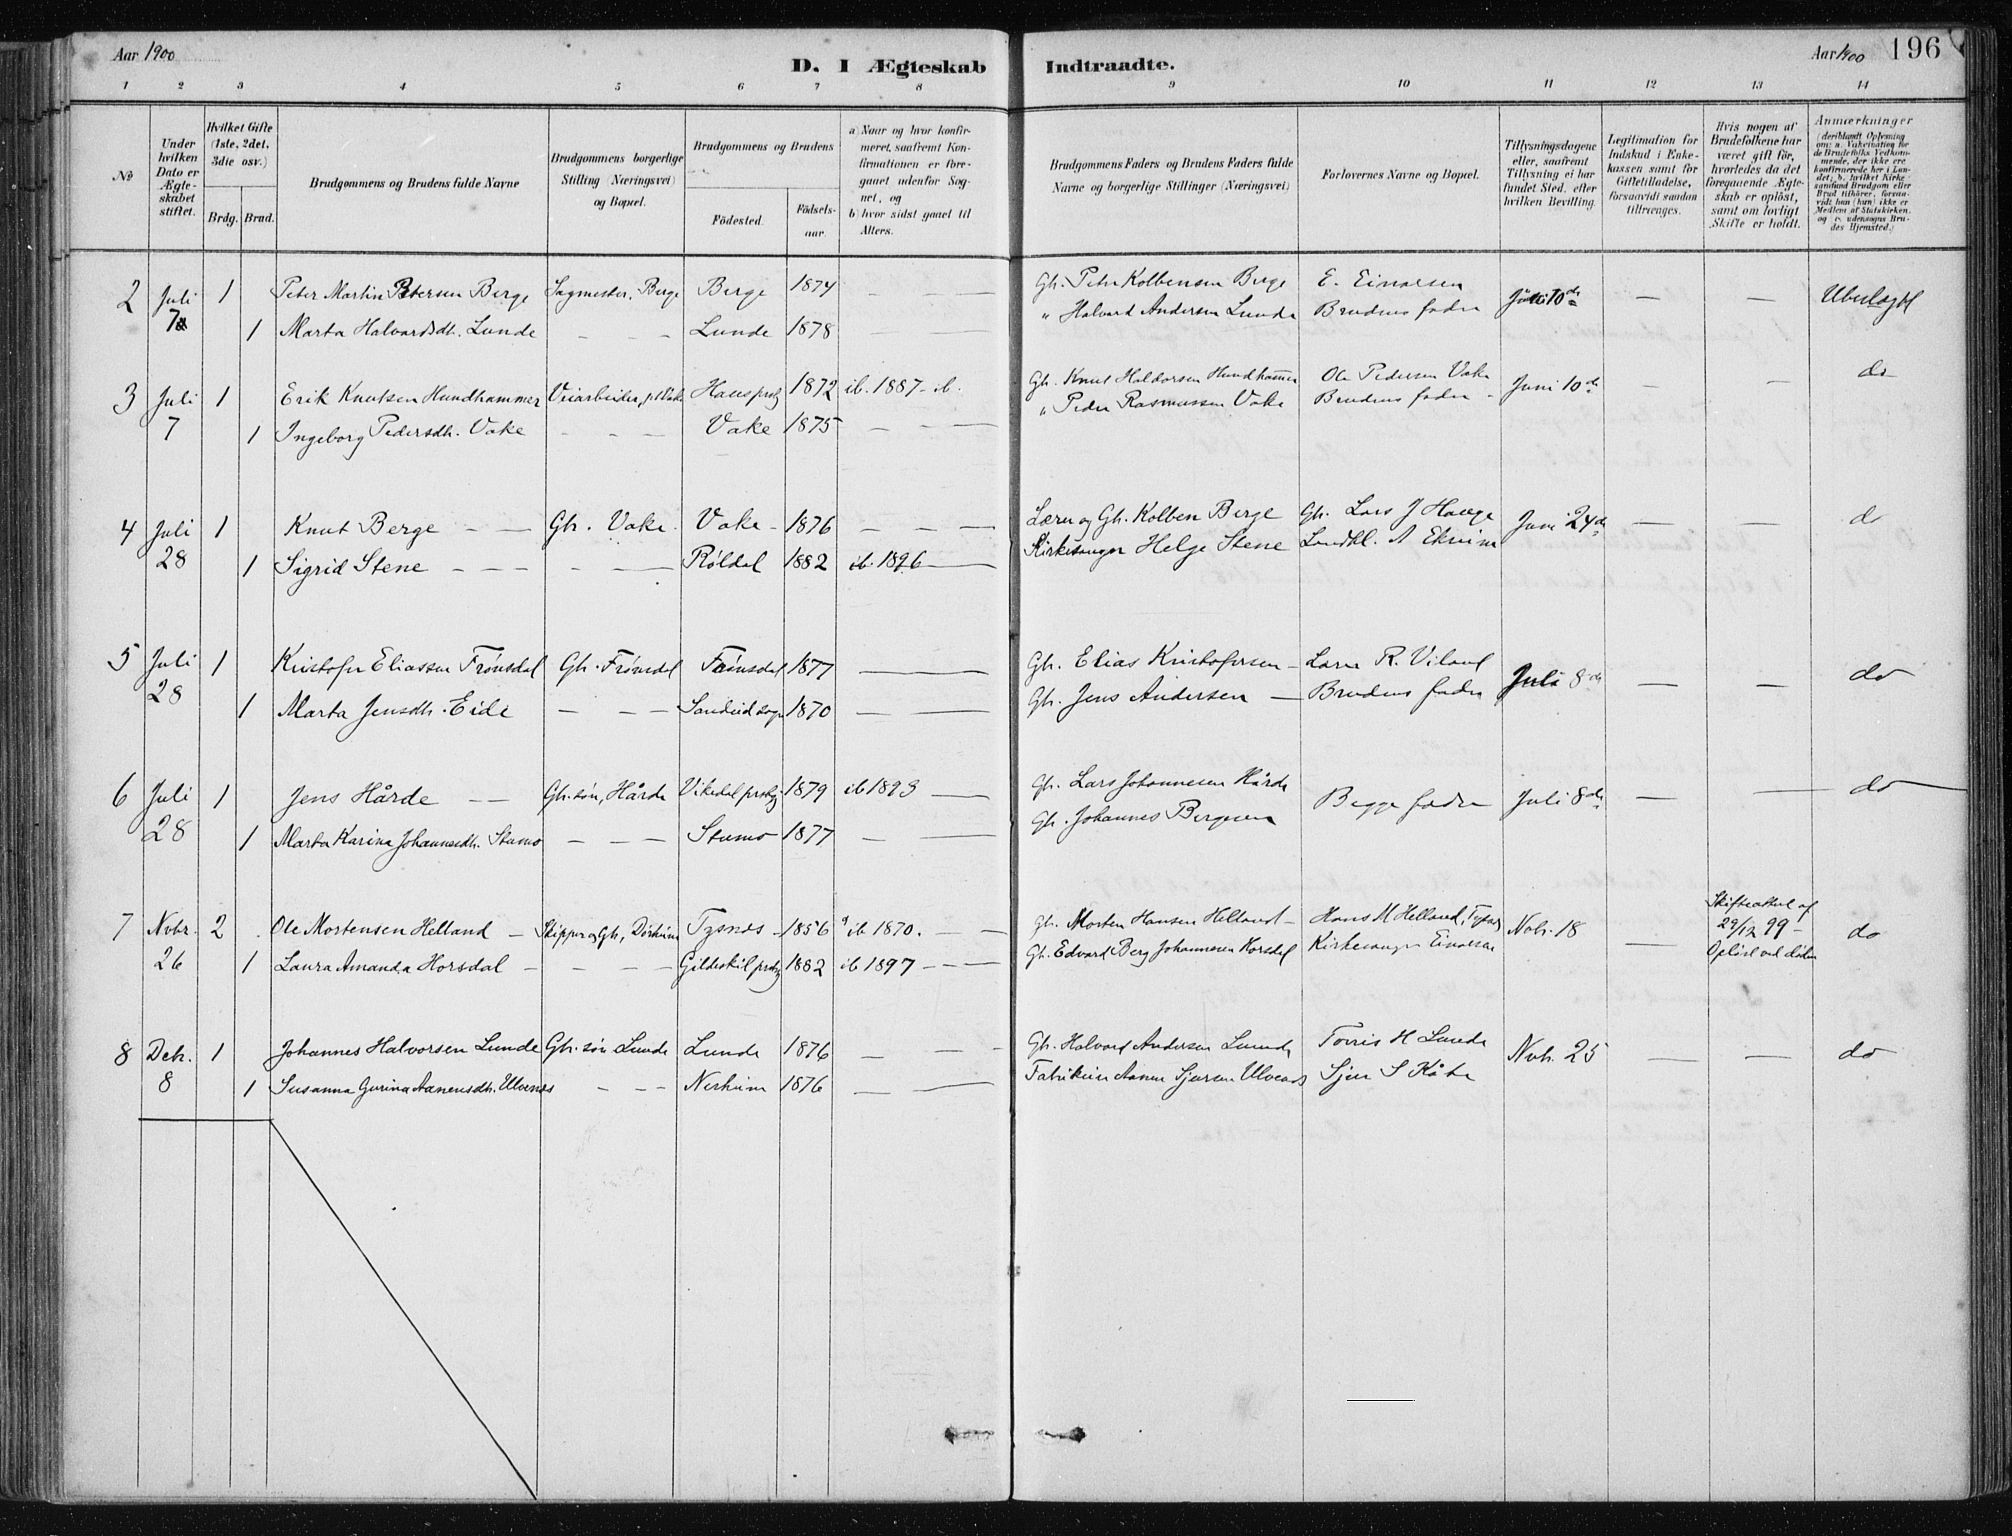 Aar 1900
D. I Ægteskab Indtraadte.
Aar 1900 196
1 2 3 4 5 6 7 8 9 10 11 12 13 14
No
Under hvilken Dato er Ægteskabet stiftet.
Hvilket Gifte (1ste, 2det, 3die osv.)
Brdg. Brud.
Brudgommens og Brudens fulde Navne
Brudgommens borgerlige Stilling (Næringsvei) og Bopæl.
Brudgommens og Brudens
Fødested. Fødsels-aar.
a) Naar og hvor konfirmeret, saafremt Konfirmationen er foregaaet udenfor Sognet, og
b) hvor sidst gaaet til Alters.
Brudgommens Faders og Brudens Faders fulde Navne og borgerlige Stillinger (Næringsvei)
Forlovernes Navne og Bopæl.
Tillysningsdagene eller, saafremt Tillysning ei har fundet Sted, efter hvilken Bevilling.
Legitimation for Indskud i Enkekassen samt for Giftetilladelse, forsaavidt saadan tiltrænges.
Hvis nogen af Brudefolkene har været gift før, hvorledes da det foregaaende Ægteskab er opløst, samt om lovligt Skifte er holdt.
Anmærkninger (deriblandt Oplysning om: a. Vakcination for de Brudefolks Vedkommende, der ikke ere konfirmerede her i Landet; b. hvilket Kirkesamfund Brudgom eller Brud tilhører, forsaavidt han (hun) ikke er Medlem af Statskirken, og c. udensogns Brudes Hjemsted.)
2 Juli 1 Peter Martin Petersen Berge Sagmester, Berge Berge 1874 — — — Gh. Peter Kolbensen Berge E. Einarsen Juni 10de — — Ubeslægtet
7 1 Marta Halvardsdh. Lunde — — — Lunde 1878 — — " Halvard Andersen Lunde Brudens fader
3 Juli 1 Erik Knutsen Hundhammer Veiarbeider, pt Vake Haus prstg 1872 ib. 1887 - ib. Gh. Knut Haldorsen Hundhammer Ole Pedersen Vake Juni 10de — — do
7 1 Ingeborg Pedersdh. Vake — — — Vake 1875 — — — " Peder Rasmussen Vake Brudens fader
4 Juli 1 Knut Berge — — Gh. Vake Vake 1876 — — — Lærer og Gh. Kolben Berge Gh. Lars J Hauge Juni 24de — — do
28 1 Sigrid Stene — — — Røldal 1882 ib. 1896 — Kirkesanger Helge Stene Landhl. A Ekrim
5 Juli 1 Kristofer Eliassen Frønsdal Gh. Frønsdal Frønsdal 1877 — Gh. Elias Kristofersen — Lærer R. Viland Juli 8de — — do
28 1 Marta Jensdh. Eide — — — Sandeid sogn 1870 — — Gh. Jens Andersen — Brudens fader
6 Juli 1 Jens Hårde — Gh. søn, Hårde Vikedal prstg 1879 ib 1893 — — Gh. Lars Johannesen Hårde Begge fædre Juli 8de — — do
28 1 Marta Karina Johannesdh. Stumo — — — Stumo 1877 — — Gh. Johannes Bergesen
7 Novbr. 2 Ole Mortensen Helland — Skipper og Gh, Dørheim Tysnes 1856 ib 1870. — — Gh. Morten Hansen Helland — Hans M Helland, Tysnes Nobr. 18 — Skifteattest af 29/12 99 — Opløst ved døden do
26 1 Laura Amanda Horsdal — — — Gildeskål prstg 1882 ib 1897 — — — Gh. Edvard Berg Johannesen Horsdal Kirkesanger Einarsen
8 Dek. 1 Johannes Halvorsen Lunde Gh. søn Lunde Lunde 1876 — — — Gh. Halvard Andersen Lunde Torris H Lunde Nvbr. 25 — — do
8 1 Susanna Gurina Aanensdh. Ulvenes — — Nerheim 1876 — — Fabrikeier Aanen Sjursen Ulvenes Sjur S Kåte